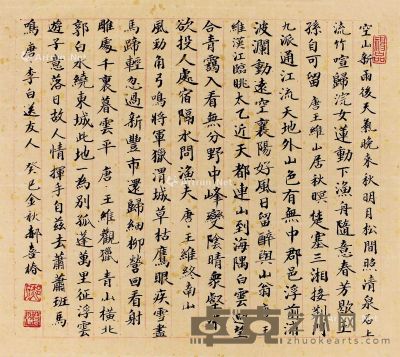 空山新雨後天氣晚来秋明月松間照清泉石上
流竹喧歸浣女蓮動下漁舟隨意春芳歇王
孫自可留 唐·王維山居秋暝 楚塞三湘接荆門
九派通江流天地外山色有無中郡邑浮前浦
波瀾動遠空襄陽好風日留醉與山翁 唐·王
維漢江臨眺太乙近天都連山到海隅白雲迴望
合青靄入看無分野中峰變陰晴衆壑殊
欲投人處宿隔水問漁夫 唐·王維終南山
風勁角弓鳴將軍獵渭城草枯鷹眼疾雪盡
馬蹄輕忽過新豐市還歸細柳營回看射
雕處千裏暮雲平 唐·王維觀獵 青山橫北
郭白水繞東城此地一為別孤蓬萬里征浮雲
遊子意落日故人情揮手自兹去蕭蕭班馬
鳴 唐·李白送友人 癸巳金秋郝喜椿